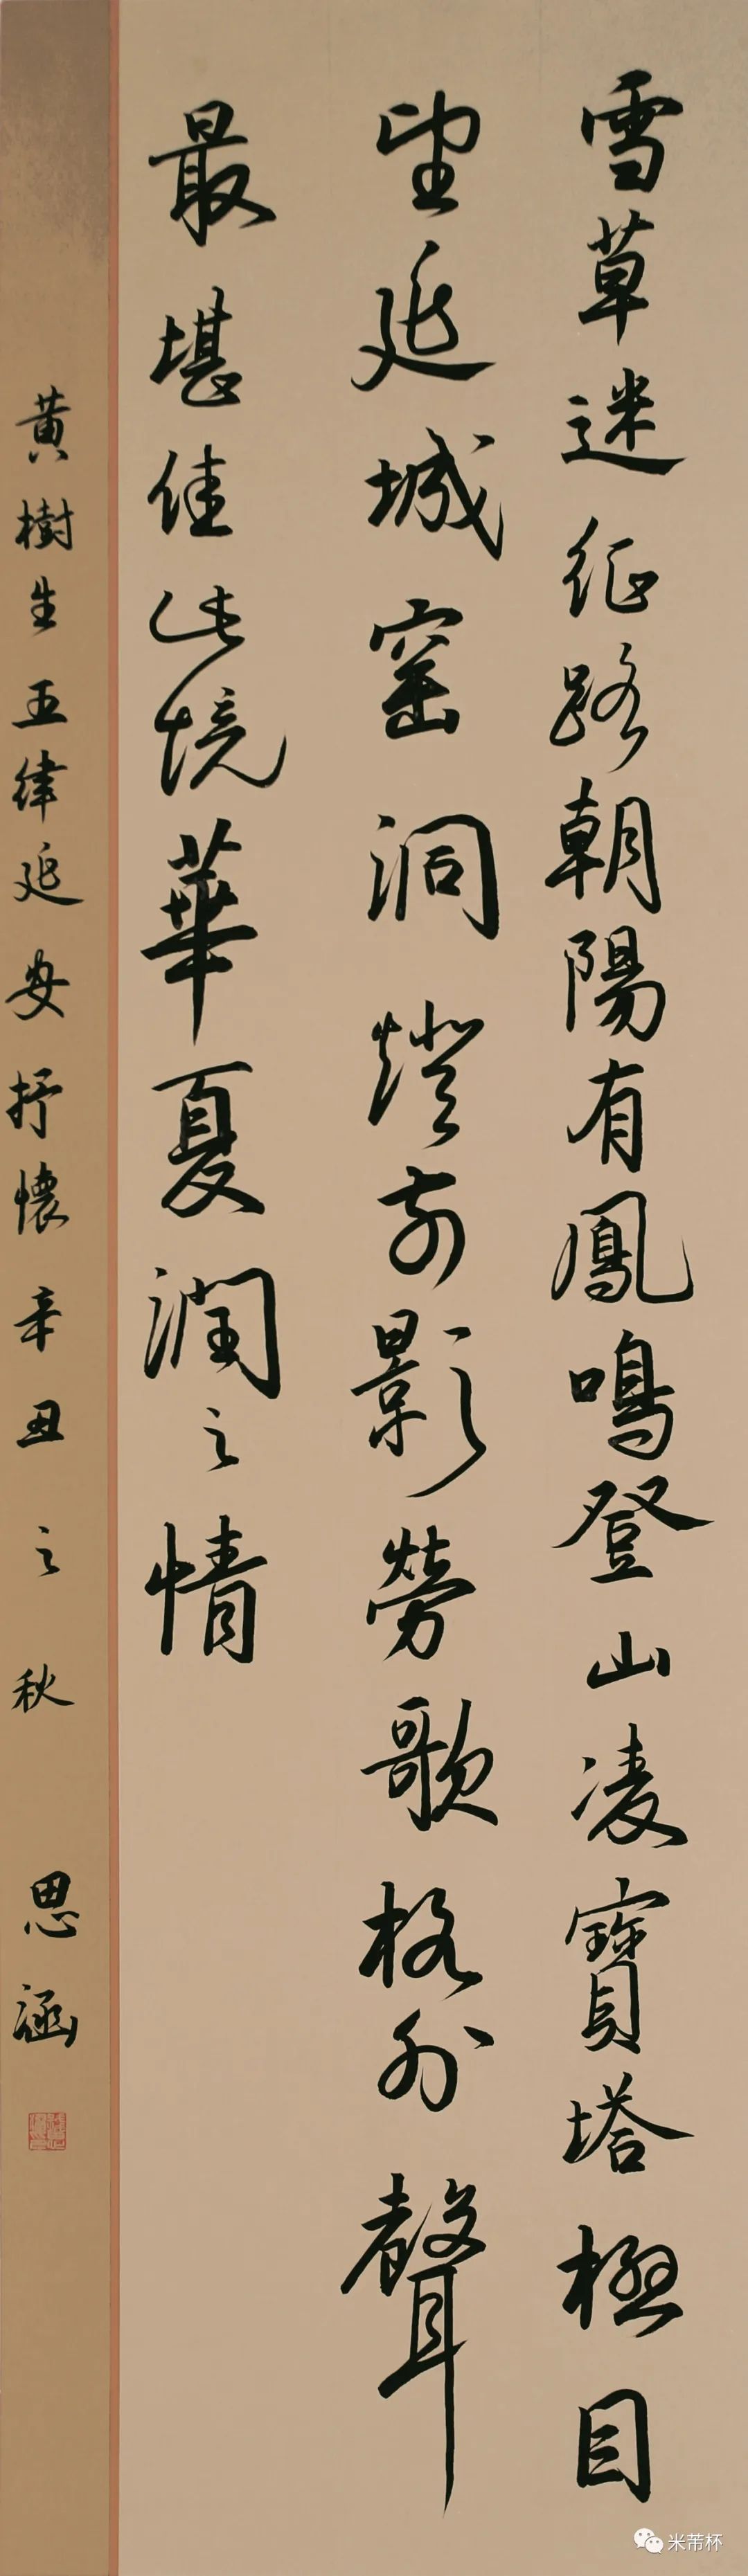 雪草迷征路朝陽有鳳鳴登山凌寶塔極目
望延城窑洞燈前影勞歌格外聲
最堪佳此境華夏潤之情
黄樹生五律延安抒懷辛丑之秋 思涵
米芾杯